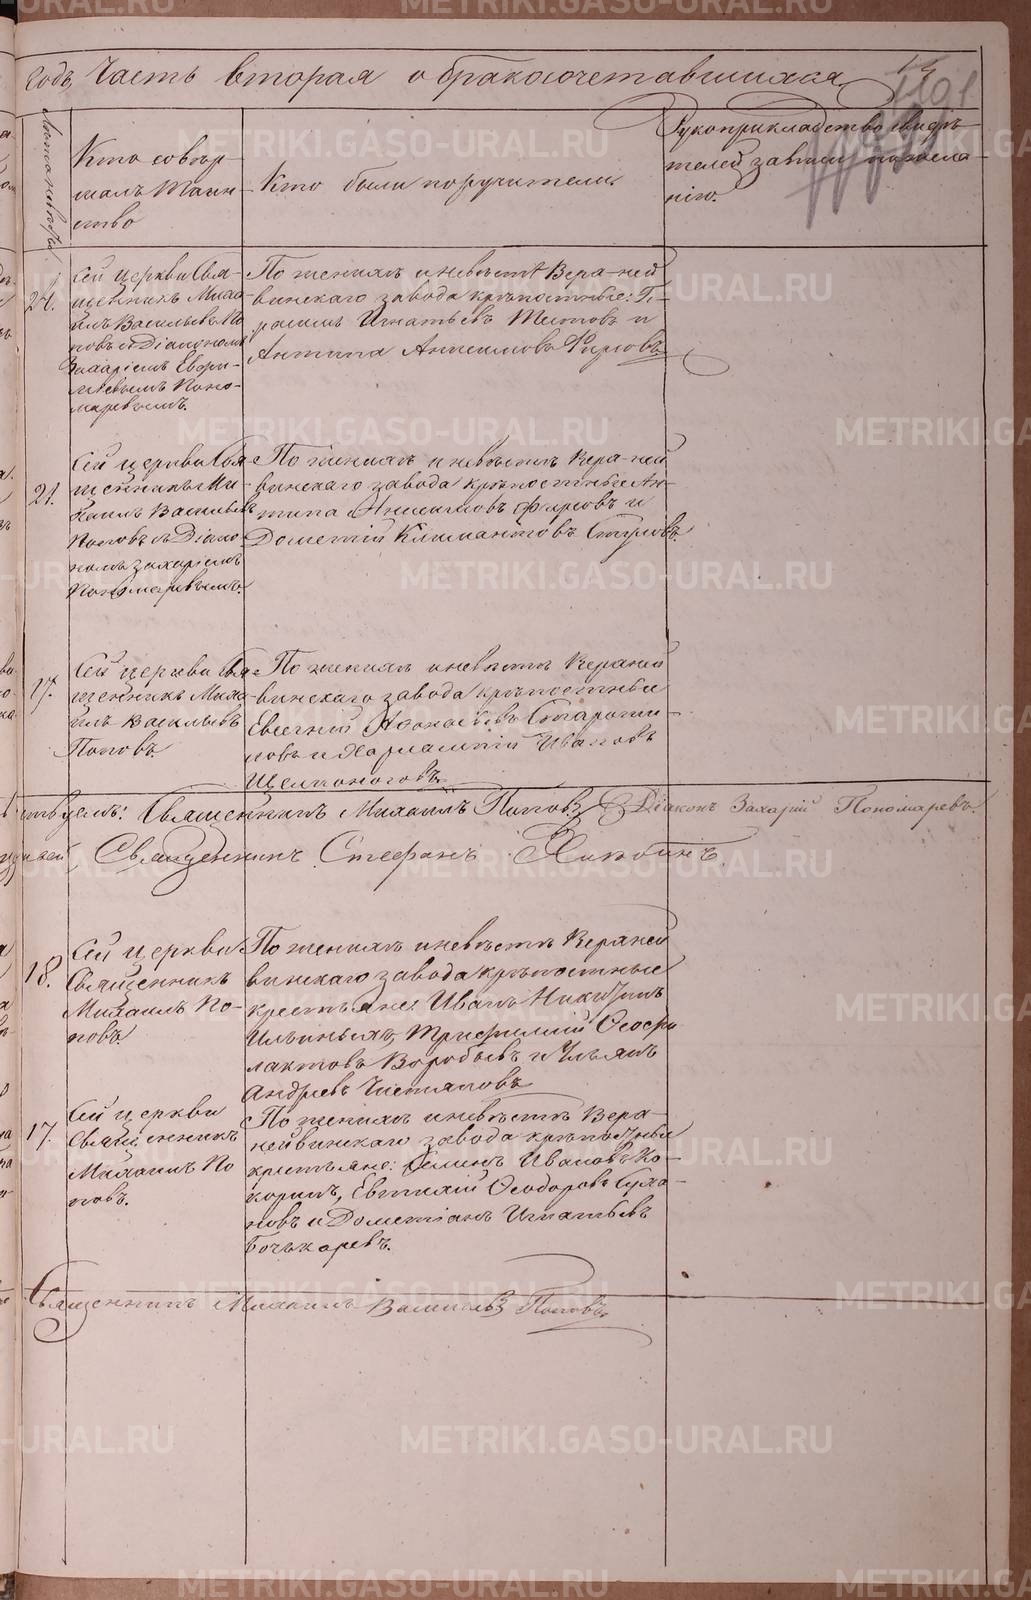 годъ, Часть вторая о бракосочетавшихся
Лѣта невѣсты.
Кто совер-
шалъ Таин-
ство
Кто были поручители.
Рукоприкладство свидѣ-
телей записи по жела-
нію.
24.
Сей церкви Свя-
щенникъ Миха-
илъ Васильевъ По-
повъ съ Діакономъ
Захаріемъ Евфи-
міевымъ Поно-
маревымъ.
По женихѣ и невѣстѣ Верхней-
винскаго завода крѣпостные: Ге-
расимъ Игнатьевъ Шестовъ и
Антипа Анисимовъ Фирсовъ
21.
Сей церкви Свя-
щенникъ Ми-
хаилъ Васильевъ
Поповъ съ Діако-
номъ Захаріемъ
Пономаревымъ.
По женихѣ и невѣстѣ Верхней-
винскаго завода крѣпостные Ан-
типа Анисимовъ Фирсовъ и
Дометій Климантовъ Стуловъ.
17.
Сей церкви Свя-
щенникъ Миха-
илъ Васильевъ
Поповъ.
По женихѣ и невѣстѣ Верхней-
винскаго завода крѣпостные
Евгеній Старошии-
новъ и Харлампій Ивановъ
Щелконоговъ.
Священникъ Михаилъ Поповъ Діаконъ Захарій Пономаревъ.
Священникъ Стефанъ
18.
Сей церкви
Священникъ
Михаилъ По-
повъ.
По женихѣ и невѣстѣ Верхней-
винскаго завода крѣпостные
крестьяне Иванъ Никитинъ
Ильиныхъ, Трифилій Ѳеофи-
лактовъ Воробьевъ и Ульянъ
Андреевъ Чистяковъ
17.
Сей церкви
Священникъ
Михаилъ По-
повъ.
По женихѣ и невѣстѣ Верх-
нейвинскаго завода крѣпостные
крестьяне: Семенъ Ивановъ Ко-
коринъ, Евтихій Ѳеодоровъ Сума-
новъ и Дометіанъ Игнатьевъ
Бочькаревъ.
Священникъ Михаилъ Васильевъ Поповъ.
METRIKI.GASO-URAL.RU